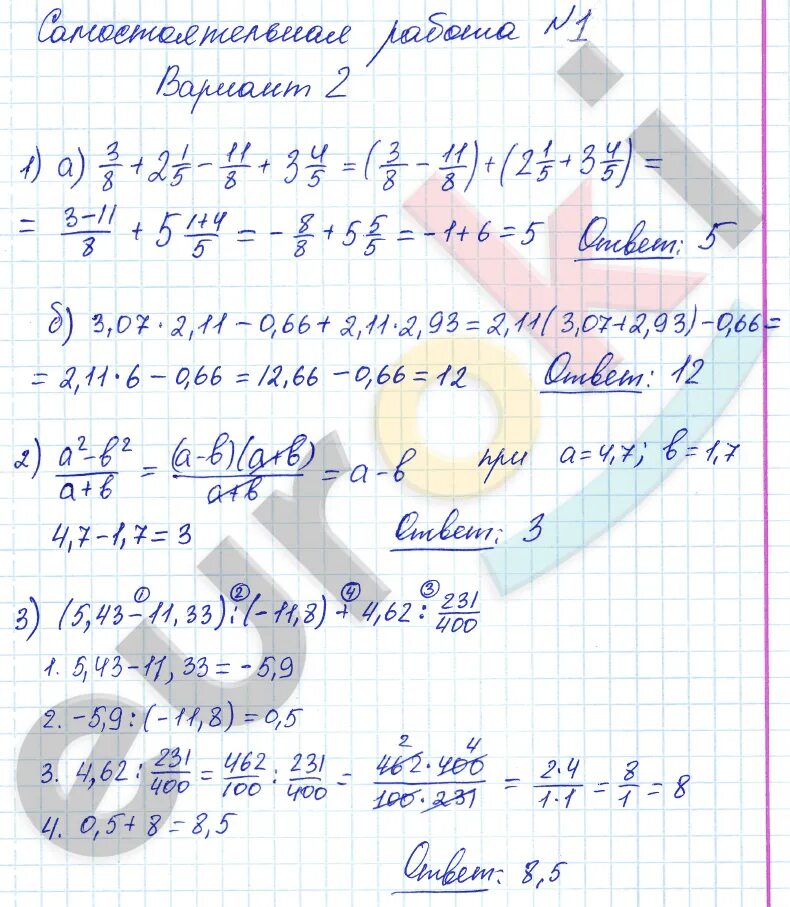 Самостоятельная работа №1
Вариант 2
1) а) 3/8 + 2 1/5 − 11/8 + 3 4/5 = (3/8 − 11/8) + (2 1/5 + 3 4/5) =
= (3−11)/8 + 5 (1+4)/5 = −8/8 + 5 5/5 = −1+6 = 5 Ответ: 5
б) 3,07·2,11 − 0,66 + 2,11·2,93 = 2,11(3,07+2,93) − 0,66 =
= 2,11·6 − 0,66 = 12,66 − 0,66 = 12 Ответ: 12
2) (a²−в²)/(a+в) = (a−в)(a+в)/(a+в) = a−в при a=4,7; в=1,7
4,7−1,7=3 Ответ: 3
① ② ④ ③
3) (5,43−11,33):(−11,8) + 4,62 : 231/400
1. 5,43−11,33 = −5,9
2. −5,9:(−11,8) = 0,5
2 4
3. 4,62 : 231/400 = 462/100 : 231/400 = (462·400)/(100·231) = (2·4)/(1·1) = 8/1 = 8
4. 0,5+8 = 8,5
Ответ: 8,5
euroki